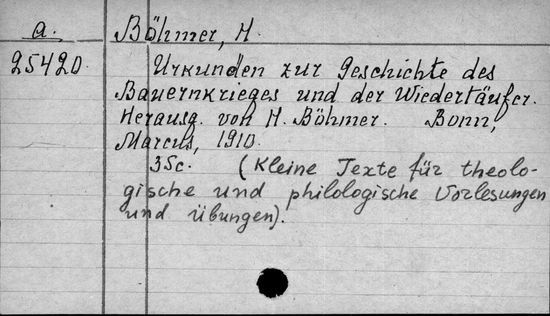 a.
Böhmer, H.
25420.
Urkunden zur Geschichte des
Bauernkrieges und der Wiedertäufer.
Herausg. von H. Böhmer. Bonn,
Marcus, 1910.
35c. (Kleine Texte für theolo-
gische und philologische Vorlesungen
und Übungen).